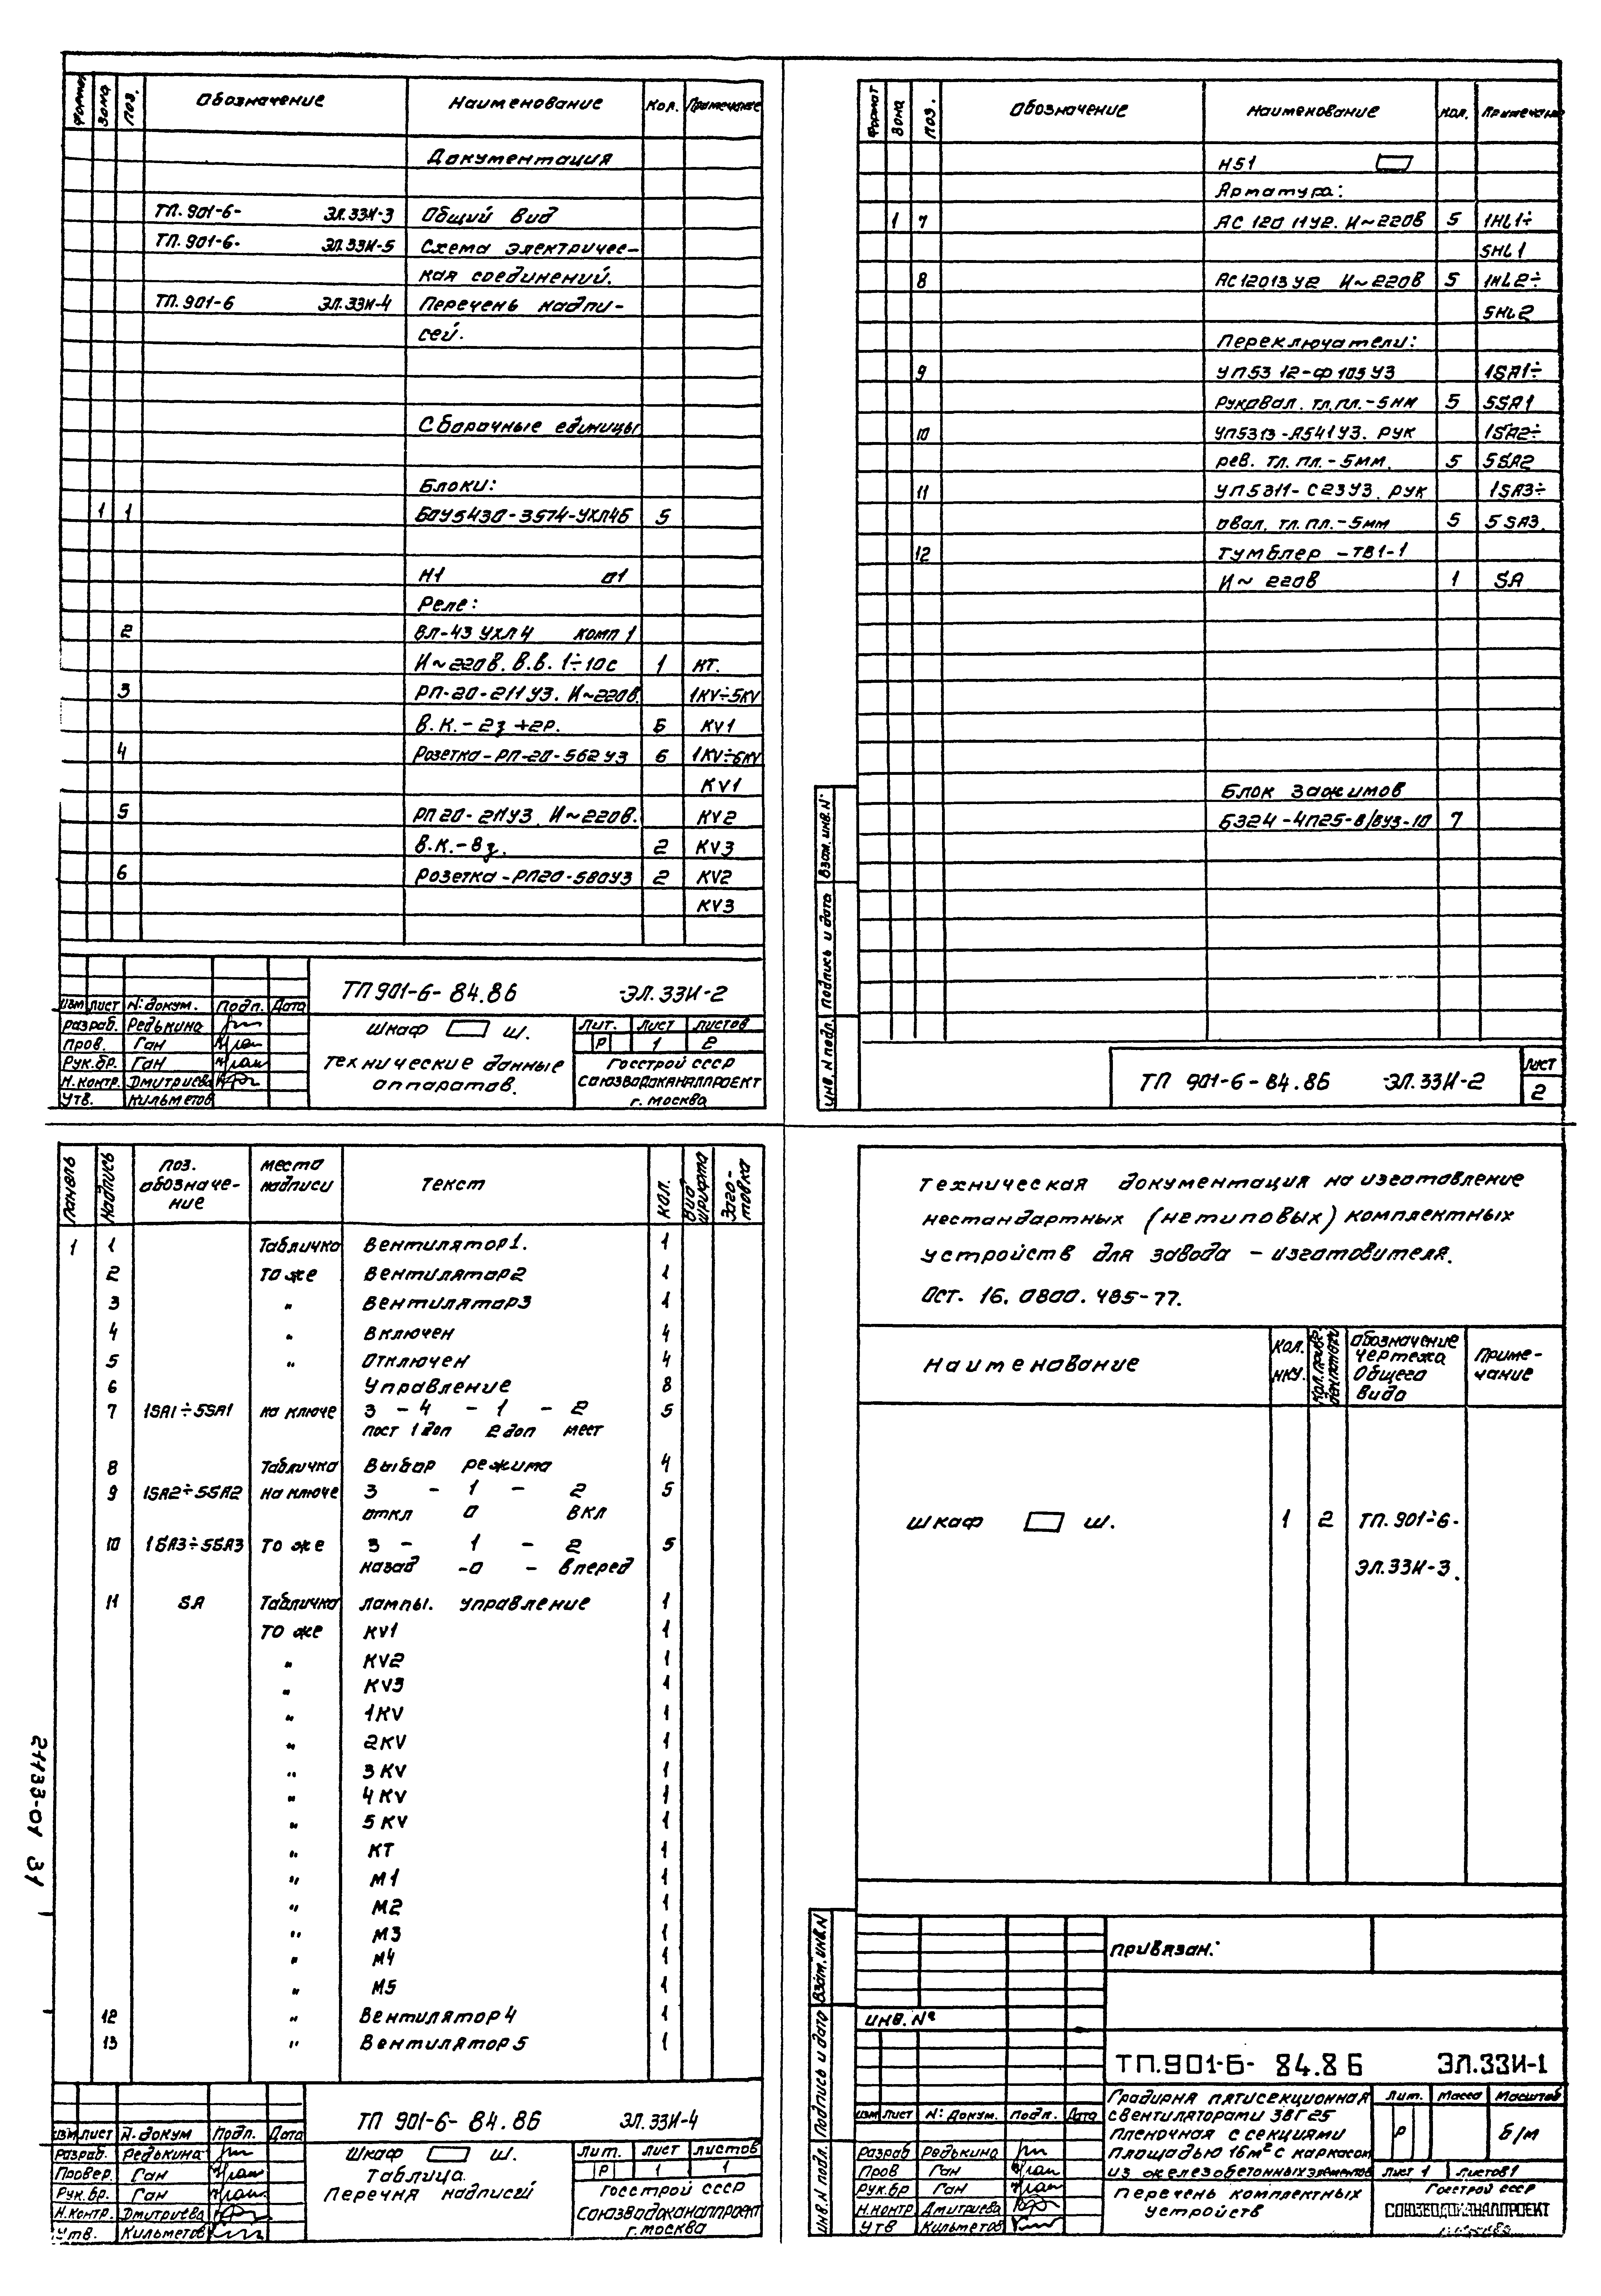 Формат Зона Поз. Обозначение Наименование Кол. Примечание
Документация
ТП. 901-6- ЭЛ.33И-3 Общий вид
ТП. 901-6- ЭЛ.33И-5 Схема электричес-
кая соединений.
ТП. 901-6 ЭЛ.33И-4 Перечень надпи-
сей.
Сборочные единицы
Блоки:
1 1 БОУ5430-3574-УХЛ4Б 5
Н1 П1
Реле:
2 ВЛ-43 УХЛ4 комп 1
И~220в. В.в. 1÷10с 1 КТ.
3 РП-20-211 У3. И~220в. 1KV÷5KV
В.К.-2з+2р. 6 KV1
4 Розетка-РП-20-562 У3 6 1KV÷6KV
KV1
5 РП20-211У3. И~220в. KV2
В.К.-8з. 2 KV3
6 Розетка-РП20-580У3 2 KV2
KV3
ТП 901-6-84.86 -ЭЛ.33И-2
Изм Лист №докум. Подп. Дата
Разраб. Редькина
Пров. Ган
Рук.бр. Ган
Н.контр. Дмитриева
Утв. Кильметов
Шкаф Ш.
Технические данные
аппаратов.
Лит. Лист Листов
Р 1 2
Госстрой СССР
Союзводоканалпроект
г. Москва
Формат Зона Поз. Обозначение Наименование Кол. Примечание
Н51
Арматура:
1 7 АС 120 11У2. И~220В 5 1HL1÷
5HL1
8 АС12013У2 И~220В 5 1HL2÷
5HL2
Переключатели:
9 УП53 12-Ф105У3 1SA1÷
Рук овал. тл.пл.-5мм 5 5SA1
10 УП5313-А541У3. рук 1SA2÷
рев. тл. пл.-5мм. 5 5SA2
11 УП5311-С23У3. рук 1SA3÷
овал. тл. пл.-5мм 5 5SA3.
12 Тумблер -ТВ1-1
И~ 220в 1 SA
Блок зажимов
Б324-4П25-В/ВУ3-10 7
Взам. инв. №
Подпись и дата
Инв. № подл.
ТП 901-6-84.86 -ЭЛ.33И-2
Лист
2
Панель Надпись Поз. обозначе-ние Места надписи Текст Кол. Вид шрифта Заго-товка
1 1 Табличка Вентилятор1. 1
2 То же Вентилятор2 1
3 " Вентилятор3 1
4 " Включен 4
5 " Отключен 4
6 Управление 8
7 1SA1÷5SA1 на ключе 3 - 4 - 1 - 2 5
пост 1 доп 2 доп мест
8 Табличка Выбор режима 4
9 1SA2÷5SA2 На ключе 3 - 1 - 2 5
откл 0 ВКЛ
10 1SA3÷5SA3 То же 3 - 1 - 2 5
назад -0 - вперед
11 SA Табличка лампы. управление 1
То же KV1 1
" KV2 1
" KV3 1
" 1KV 1
" 2KV 1
" 3KV 1
" 4KV 1
" 5KV 1
" КТ 1
" М1 1
" М2 1
" М3 1
" М4 1
" М5 1
12 " Вентилятор4 1
13 " Вентилятор5 1
ТП 901-6-84.86 ЭЛ.33И-4
Изм Лист №докум Подп. Дата
Разраб. Редькина
Провер. Ган
Рук.бр Ган
Н.контр. Дмитриева
Утв. Кильметов
Шкаф Ш.
Таблица
Перечня надписей
Лит. Лист Листов
Р 1 1
Госстрой СССР
Союзводоканалпроект
г.Москва
21133-04 31
Техническая документация на изготовление
нестандартных (нетиповых) комплектных
устройств для завода - изготовителя.
Ост. 16. 0800. 485-77.
Наименование Кол. НКУ. Обозначение чертежа Общего вида Приме-чание
Шкаф Ш. 1 2 ТП. 901-6-
ЭЛ.33И-3.
Взам. инв.№
Подпись и дата
Инв.№ подл.
Привязан:
Инв. №
ТП.901-6- 84.86 ЭЛ.33И-1
Изм Лист №докум. Подп. Дата
Разраб Редькина
Пров Ган
Рук.бр Ган
Н.контр Дмитриева
Утв Кильметов
Градирня пятисекционная
с вентиляторами 3ВГ25
Пленочная с секциями
площадью 16м² с каркасом
из железобетонных элементов
Перечень комплектных
устройств
Лит. Масса Масштаб
Р Б/м
Лист 1 Листов1
Госстрой СССР
СОЮЗВОДОКАНАЛПРОЕКТ